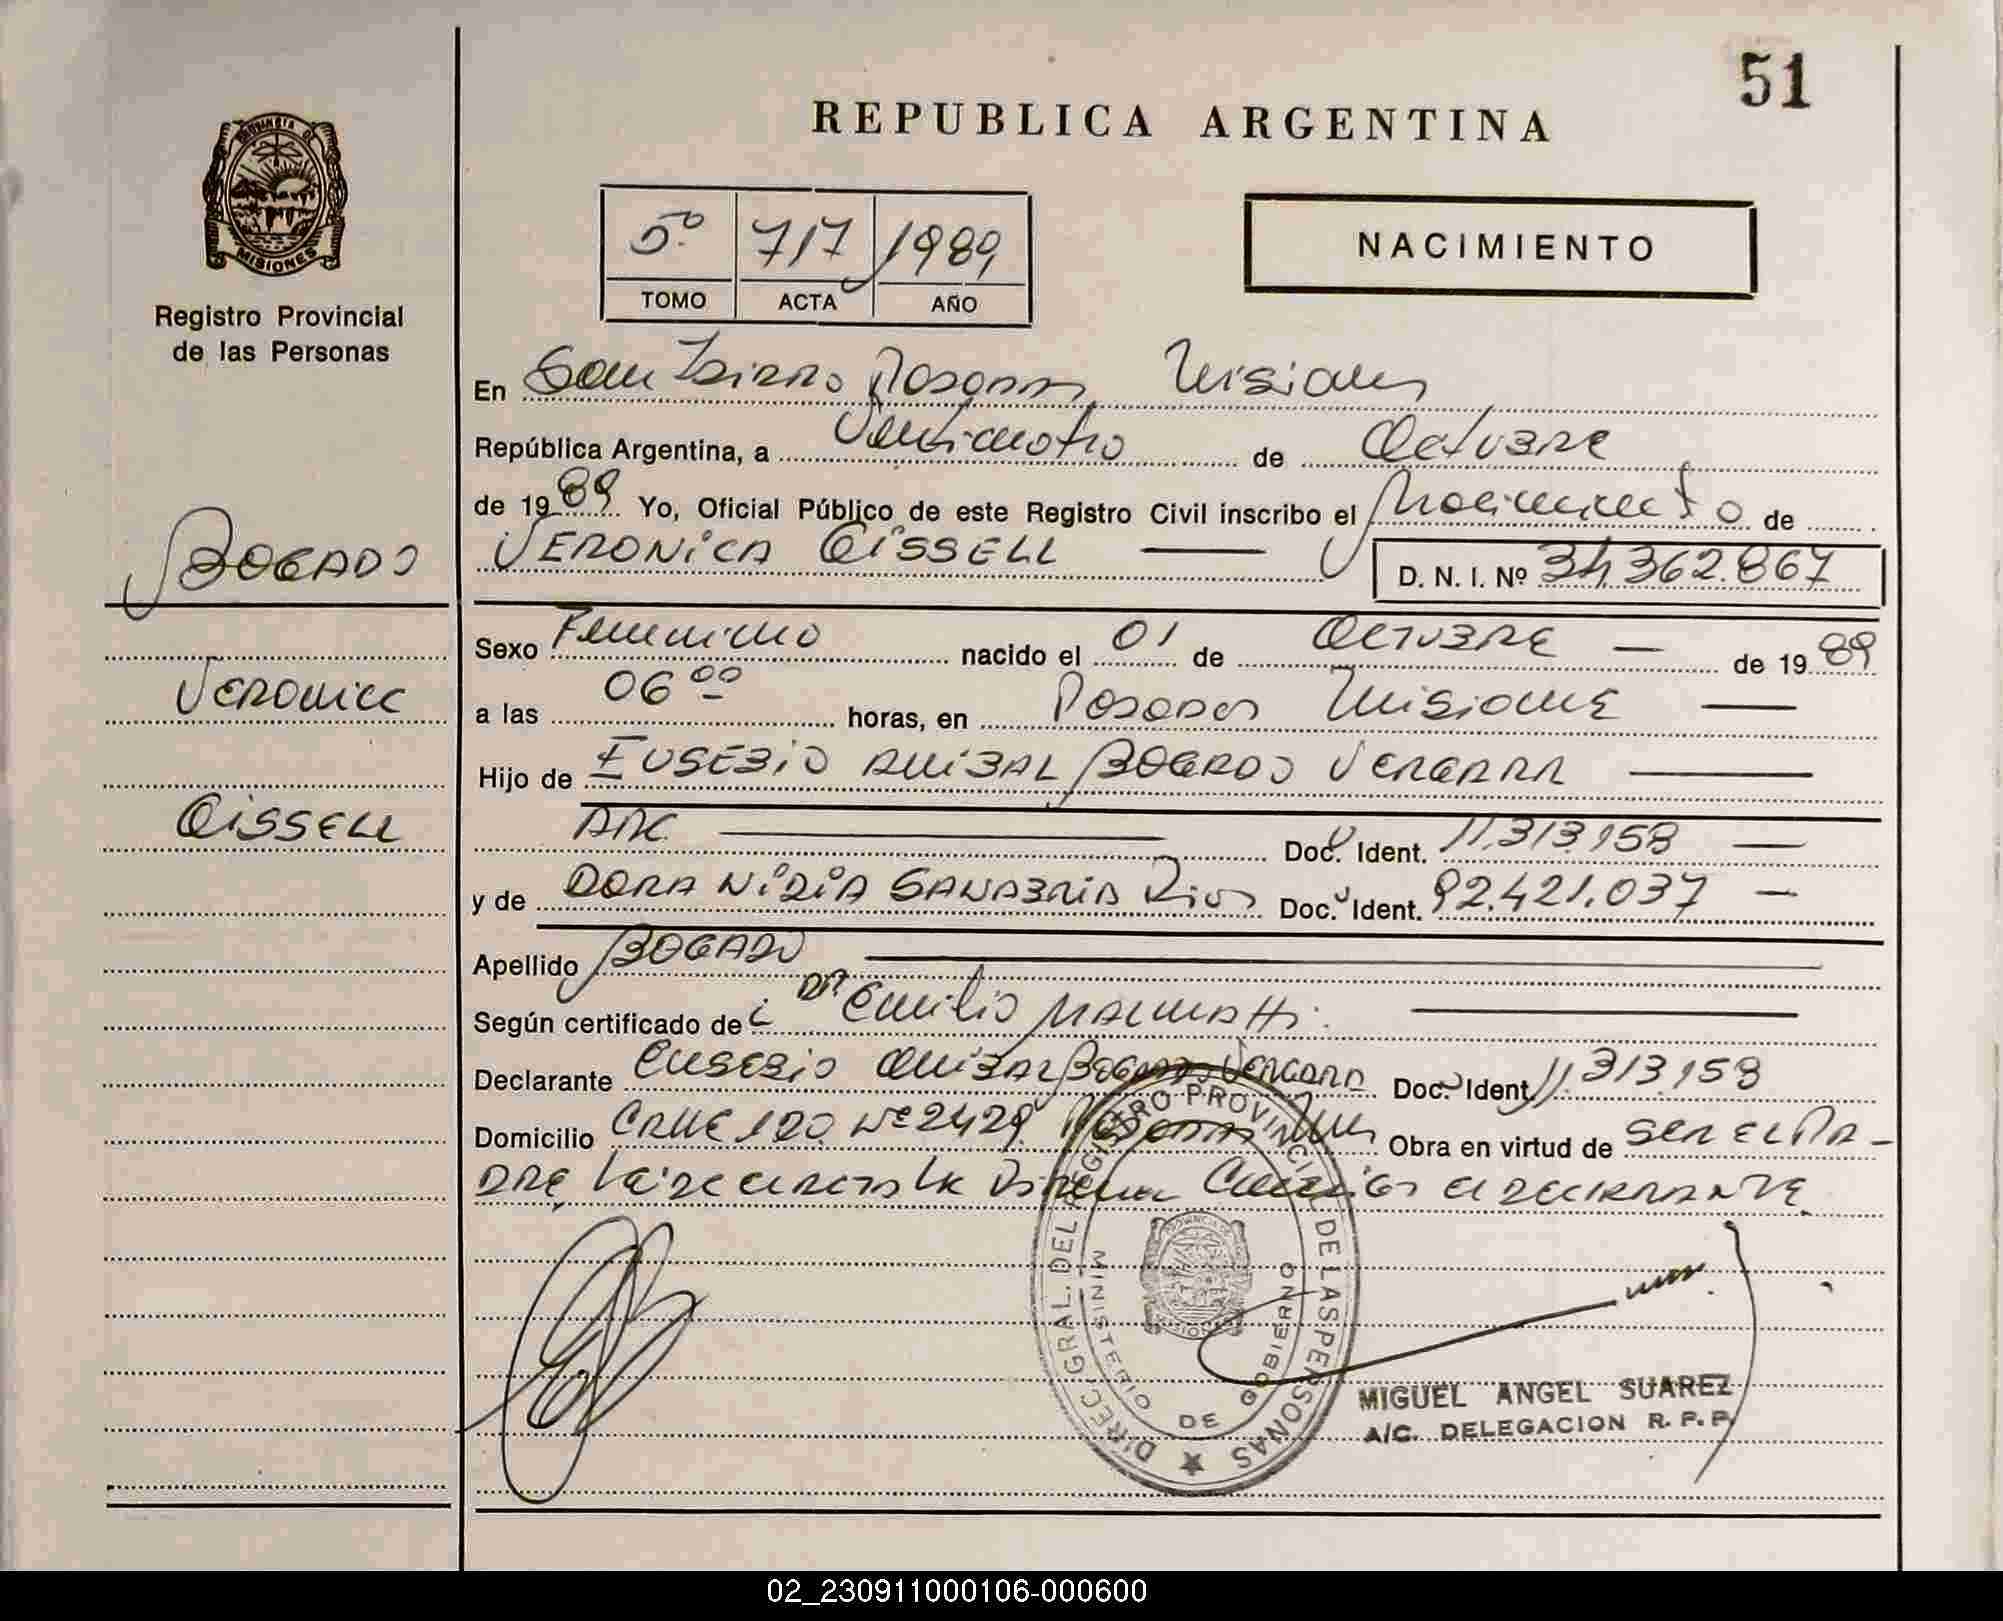 51
REPUBLICA ARGENTINA
PROVINCIA DE
MISIONES
Registro Provincial
de las Personas
5º 717 1989
TOMO ACTA AÑO
NACIMIENTO
En San Isidro Posadas Misiones
República Argentina, a Veinticuatro de Octubre
de 1989 Yo, Oficial Público de este Registro Civil inscribo el Nacimiento de
BOGADO
VERONICA GISSELL
D. N. I. Nº 34.362.867
Sexo Femenino nacido el 01 de OCTUBRE de 1989
VERONICA
a las 06 00 horas, en Posadas Misiones
Hijo de EUSEBIO ANIBAL BOGADO VERGARA
GISSELL
ARG. Doc. Ident. 11.313.158
y de DORA NIDIA SANABRIA Rios Doc. Ident. 92.421.037
Apellido BOGADO
Según certificado de DR Emilio
Declarante EUSEBIO ANIBAL BOGADO VERGARA Doc. Ident. 11.313.158
Domicilio CALLE 120 Nº 2429 Posadas Mnes Obra en virtud de SER EL PA-
DRE, el DECLARANTE.
DIREC. GRAL. DEL REGISTRO PROVINCIAL DE LAS PERSONAS
MINISTERIO DE GOBIERNO
MIGUEL ANGEL SUAREZ
A/C. DELEGACION R. P. P.
02_230911000106-000600